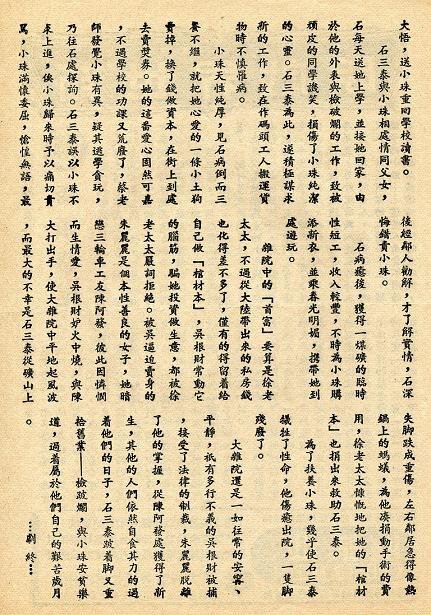 大悟，送小珠重回學校讀書。
石三泰與小珠相處情同父女，
石每天送她上學，並接她回家，由
於他的外表與檢破爛的工作，致被
頑皮的同學譏笑，損傷了小珠純潔
的心靈。石三泰為此，遂積極謀求
新的工作，致在作碼頭工人搬運貨
物時不慎罹病。
小珠天性純厚，見石病倒而三
餐不繼，就把她心愛的一條小土狗
賣掉，換了錢做資本，在街上到處
去賣獎券。她的這番愛心固然可嘉
，不過學校的功課又荒廢了，蔡老
師發覺小珠有異，疑其逃學貪玩，
乃往石處探詢。石三泰誤以小珠不
求上進，俟小珠歸來時予以痛切責
罵，小珠滿懷委屈，傷愴無語，最
後經鄰人勸解，才了解實情，石深
悔錯責小珠。
石病癒後，獲得一煤礦的臨時
性短工，收入較豐，不時為小珠購
添新衣，並乘春光明媚，携帶她到
處遊玩。
雜院中的「首富」要算是徐老
太太，不過從大陸帶出來的私房錢
也化得差不多了，僅有的得留着給
自己做「棺材本」，吳根財常動它
的腦筋，騙她投資做生意，都被徐
老太太嚴詞拒絕。被吳逼迫賣身的
朱麗麗是個本性善良的女子，她暗
戀三輪車工友陳阿發，彼此因憐憫
而生情愛，吳根財妒火中燒，與陳
大打出手，使大雜院中平地起風波
，而最大的不幸是石三泰從礦山上
失脚跌成重傷，左右鄰居急得像熱
鍋上的螞蟻，為他凑捐動手術的費
用，徐老太太慷慨地把她的「棺材
本」也捐出來救助石三泰。
為了扶養小珠，幾乎使石三泰
犧牲了性命，他傷癒出院，一隻脚
殘廢了。
大雜院還是一如往常的安寧、
平靜，祇有多行不義的吳根財被捕
，接受了法律的制裁，朱麗麗脱離
了他的掌握，從陳阿發處獲得了新
生，其他的人們依然自食其力的過
着他們的日子，石三泰跛着脚又重
拾舊業——檢破爛，與小珠安貧樂
道，過着屬於他們自己的艱苦歲月
。
…劇 終…